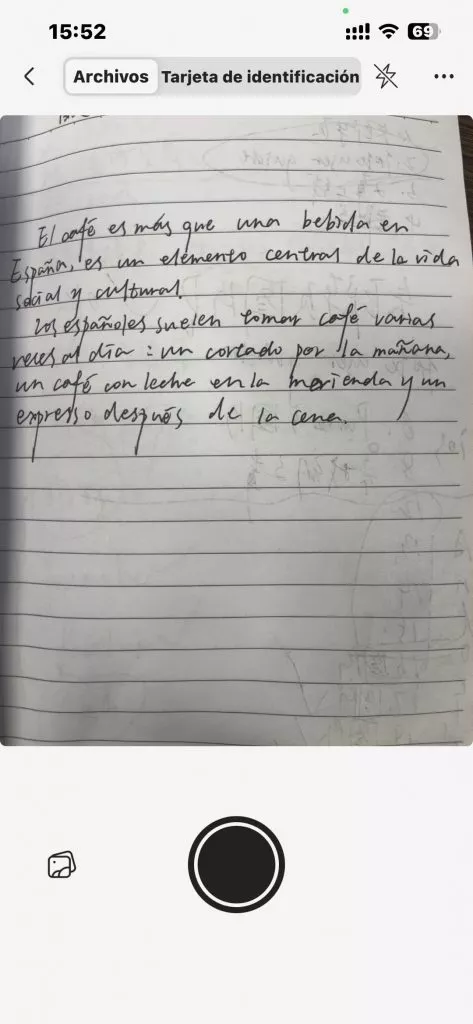 15:52
69
Archivos Tarjeta de identificación
El café es más que una bebida en
España, es un elemento central de la vida
social y cultural.
Los españoles suelen tomar café varias
veces al día: un cortado por la mañana,
un café con leche en la merienda y un
expresso después de la cena.